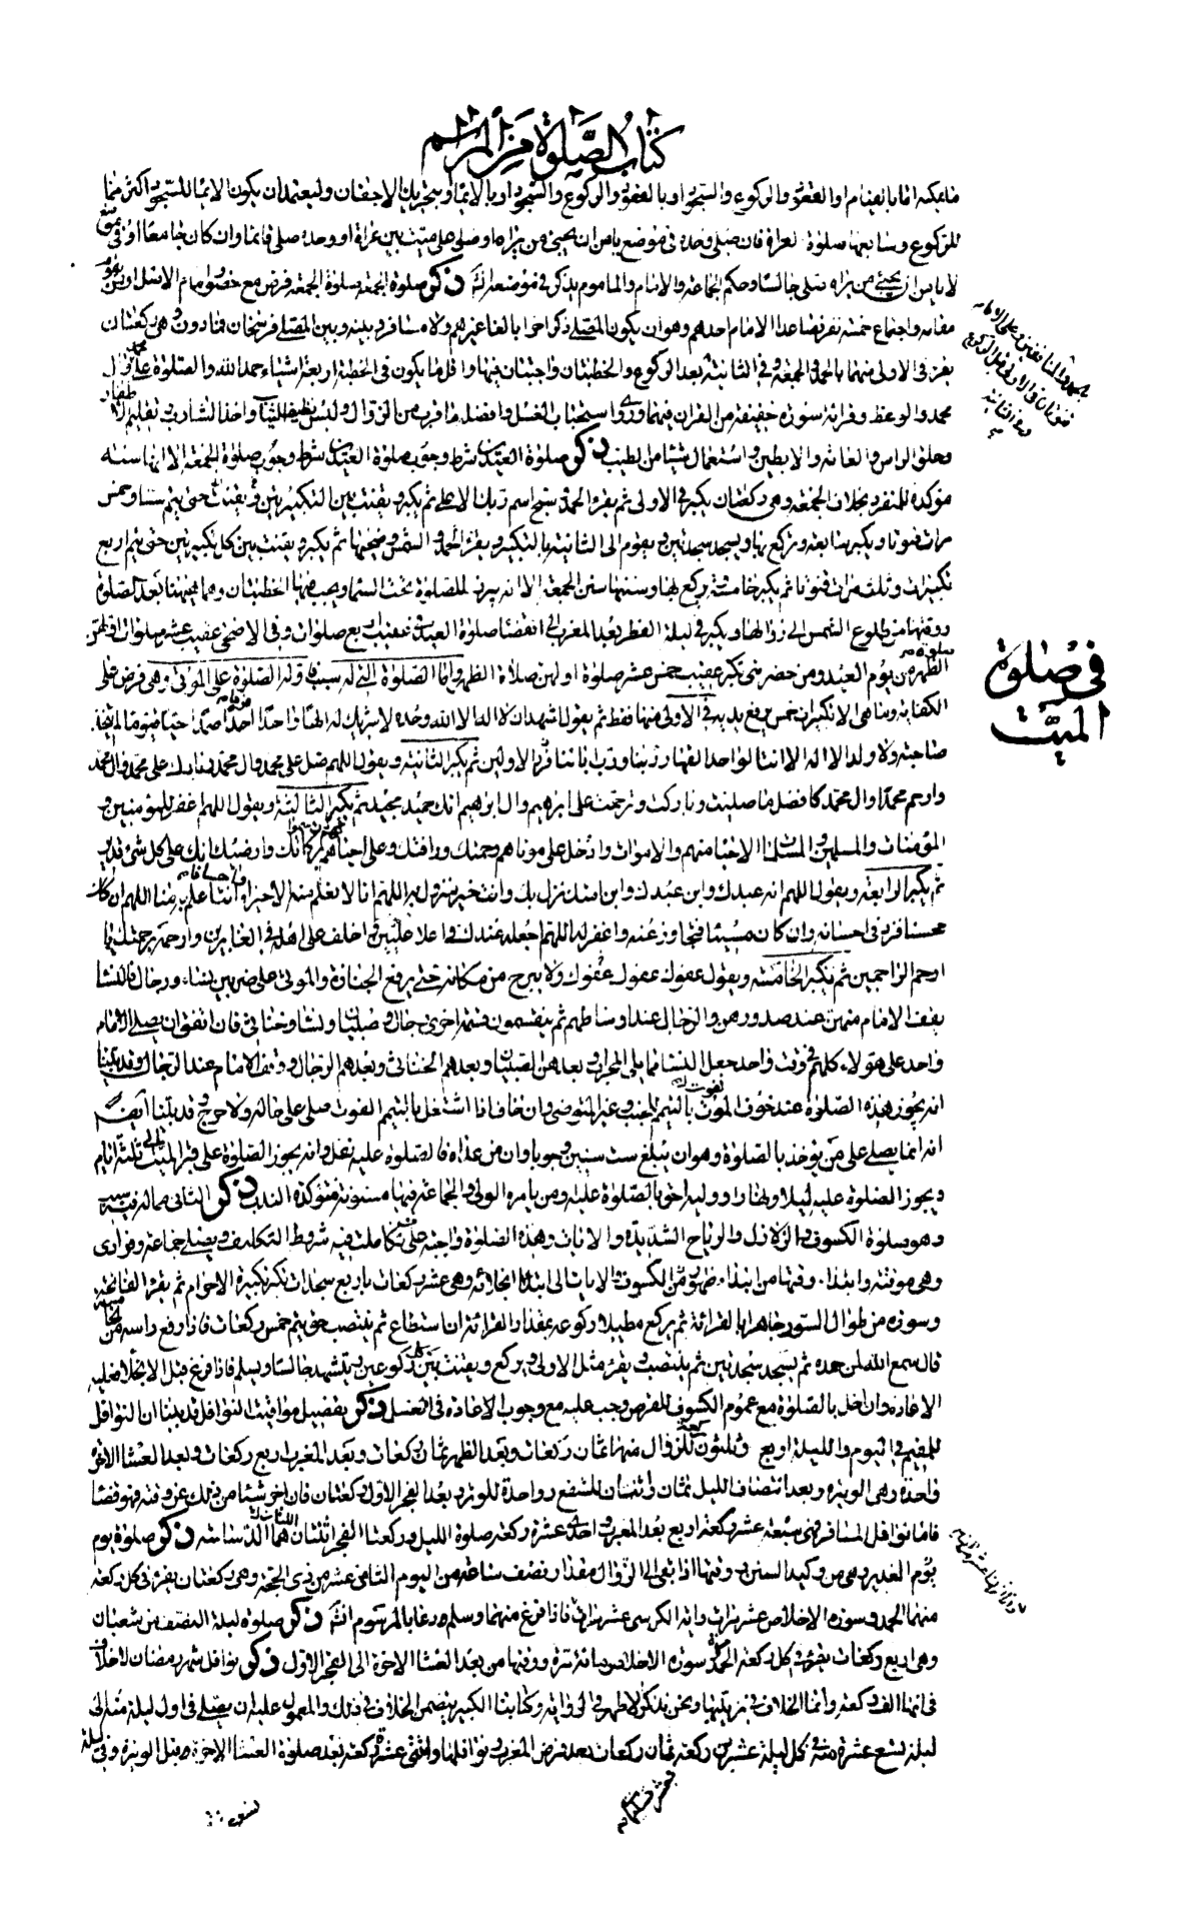 كتاب الصلوة من المراسم
ما يمكنه اما بالقيام او القعود والركوع والسجود او بالقعود والركوع والسجود او بالايماء وبتحريك الاجفان وليعتمد ان يكون الايماء للسجود اكثر منها
للركوع وسابعها صلوة العراة فان صلى وحده في موضع يامن ان يجيئ من يراه وصلى على ميت بين عراة او وحده صلى قائما وان كان جامعا او في
لا يامن ان يجيئ من يراه صلى جالسا وحكم الجماعة والامام والماموم يذكر في موضعه انش ذكر صلوة الجمعة صلوة الجمعة فرض مع حضور امام الاصل او من يقوم
مقامه واجتماع خمسة نفر فصاعدا الامام احدهم وهو ان يكون المصلى ذكرا حرا بالغا غير هم ولا مسافر وبينه وبين المصلى فرسخان فما دون وهي ركعتان
يقرء في الاولى منهما بالحمد والجمعة وفي الثانية بعد الركوع والخطبتان واجبتان فيها واقل ما يكون في الخطبة اربعة اشياء حمد الله والصلوة على محمد وال
محمد والوعظ وقرائة سورة خفيفة من القران فيهما وروى استحباب الغسل وافضله ما قرب من الزوال ولبس نظيف الثياب واخذ الشارب وتقليم الاظفار
وحلق الراس والعانة والابطين واستعمال شيئا من الطيب ذكر صلوة العيدين شرط وجوب صلوة العيدين شرط وجوب صلوة الجمعة الا انها سنة
مؤكدة للمنفرد بخلاف الجمعة وهي ركعتان يكبر في الاولى ثم يقرء الحمد وسبح اسم ربك الاعلى ثم يكبر ويقنت بين التكبيرتين ويقنت حتى يتم ستا وخمس
مرات قنوتا ويكبر سابعة ويركع بها ويسجد سجدتين ويقوم الى الثانية بالتكبير ويقرء الحمد والشمس وضحيها ثم يكبر ويقنت بين كل تكبيرتين حتى يتم اربع
تكبيرات وثلث مرات قنوتا ثم يكبر خامسة يركع بها وسننها سنن الجمعة الا انه يبرز للصلوة تحت السماء ويجب فيها الخطبتان وهما هيهنا بعد الصلوة
ووقتها من طلوع الشمس الى زوالها ويكبر في ليلة الفطر بعد المغرب الى انقضاء صلوة العيد في عقيب اربع صلوات وفي الاضحى عقيب عشر صلوات اولهن
الظهر من يوم العيد ومن حضر منى يكبر عقيب خمس عشر صلوة اولهن صلاة الظهر واما الصلوة التي له سبب فاوله الصلوة على الموتى وهي فرض على
الكفاية وما هي الا تكبيرات خمس يرفع يديه في الاولى منها فقط ثم يقول اشهد ان لا اله الا الله وحده لا شريك له الها واحدا احدا صمدا حيا قيوما لم يتخذ
صاحبة ولا ولدا لا اله الا الله الواحد القهار ربنا ورب ابائنا الاولين ثم يكبر الثانية ويقول اللهم صل على محمد وال محمد وبارك على محمد وال محمد
وارحم محمدا وال محمد كافضل ما صليت وباركت وترحمت على ابرهيم وال ابرهيم انك حميد مجيد ثم يكبر الثالثة ويقول اللهم اغفر للمؤمنين و
المؤمنات والمسلمين والمسلمات الاحياء منهم والاموات وادخل على موتاهم رحمتك ورافتك وعلى احيائهم بركاتك وارضك انك على كل شئ قدير
ثم يكبر الرابعة ويقول اللهم انه عبدك وابن عبدك وابن امتك نزل بك وانت خير منزول به اللهم انا لا نعلم منه الا خيرا وانت اعلم به منا اللهم ان كان
محسنا فزد في احسانه وان كان مسيئا فتجاوز عنه واغفر له اللهم اجعله عندك في اعلا عليين واخلف على اهله في الغابرين وارحمه برحمتك يا
ارحم الراحمين ثم يكبر الخامسة ويقول عفوك عفوك عفوك ولا يبرح من مكانه حتى يرفع الجنازة والموتى على ضربين نساء ورجال فالنساء
يقف الامام منهن عند صدورهن والرجال عند اوساطهم ثم ينقسمون قسمة اخرى رجال وصبيان ونساء وخناثى فان اتفق ان يصلى الامام
واحد على هؤلاء كلهم في وقت واحد جعل النساء مما يلى المحراب وبعدهن الصبيان وبعدهم الخناثى وبعدهم الرجال ووقف الامام عند الرجال وقد بينا
انه يجوز هذه الصلوة عند خوف الفوت بالتيمم للجنب وغير المتوضى وان خاف اذا اشتغل بالتيمم الفوت صلى على حاله ولا حرج وقد بينا ايضا
انه انما يصلى على من يؤخذ بالصلوة وهو ان يبلغ ست سنين وجوبا وان من عداه فالصلوة عليه نفل وانه يجوز الصلوة على قبر الميت الى ثلثة ايام
ويجوز الصلوة عليه ليلا ونهارا ووليه احق بالصلوة عليه ومن يامره الولى والجماعة فيها مسنونة مؤكدة الندب ذكر الثانى مما له سبب
وهو صلوة الكسوف والزلازل والرياح الشديدة والايات وهذه الصلوة واجبة على من تكاملت فيه شروط التكليف ويصلى جماعة وفرادى
وهي موقتة وابتداء وقتها من ابتداء ظهور الكسوف والايات الى ابتداء انجلائه وهي عشر ركعات باربع سجدات يكبر تكبيرة الاحرام ثم يقرء الفاتحة
وسورة من طوال السور جاهرا بالقرائة ثم يركع مطيلا ركوعه بمقدار القرائة ان استطاع ثم ينتصب حتى يتم خمس ركعات فاذا رفع راسه من الخامسة
قال سمع الله لمن حمده ثم يسجد سجدتين ثم ينتصب ويقرء مثل الاولى ويركع ويقنت بين كل ركوعين ويتشهد جالسا ويسلم فاذا فرغ قبل الانجلاء فعليه
الاعادة وان اخل بالصلوة مع عموم الكسوف للقرص وجب عليه مع وجوب الاعادة في الغسل ذكر تفصيل مواقيت النوافل قد بينا ان النوافل
للمقيم في اليوم والليلة اربع وثلثون ركعة للزوال منها ثمان ركعات وبعد الظهر ثمان ركعات وبعد المغرب اربع ركعات وبعد العشاء الاخرة
واحدة وهي الوتيرة وبعد انتصاف الليل ثمان واثنتان للشفع وواحدة للوتر وبعد الفجر الاول ركعتان فان اخر شيئا من ذلك عن وقته فهو قضاء
فاما نوافل المسافر فهي سبعة عشر ركعة اربع بعد المغرب واحدى عشرة ركعة صلوة الليل وركعتا الفجر اثنتان هما الدساسة ذكر صلوة يوم
يوم الغدير وهي من وكيد السنن ووقتها اذا بقى الى الزوال مقدار نصف ساعة من اليوم الثامن عشر من ذي الحجة وهي ركعتان يقرء في كل ركعة
منهما الحمد وسورة الاخلاص عشر مرات واية الكرسي عشر مرات فاذا فرغ منهما وسلم دعا بالمرسوم انش ذكر صلوة ليلة النصف من شعبان
وهي اربع ركعات يقرء في كل ركعة الحمد وسورة الاخلاص مائة مرة ووقتها من بعد العشاء الاخرة الى الفجر الاول ذكر نوافل شهر رمضان لا خلاف
في انها الف ركعة وانما الخلاف في ترتيبها ونحن نذكر الاظهر في الرواية وكتابنا الكبير يتضمن الخلاف في ذلك والمعمول عليه ان يصلى في اول ليلة منه الى
ليلة تسع عشرة منه في كل ليلة عشرين ركعة ثمان ركعات بعد فرض المغرب ونوافلها واثنتى عشرة ركعة بعد صلوة العشاء الاخرة قبل الوتيرة وفي ليلة
في صلوة
الميت